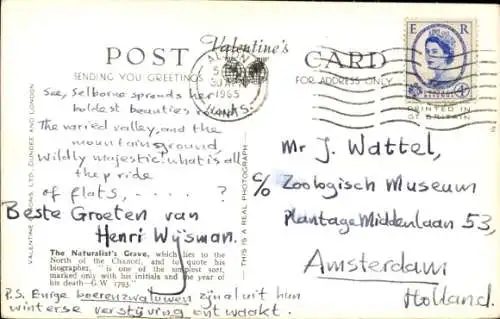 POST Valentine's CARD
SENDING YOU GREETINGS
FOR ADDRESS ONLY
E R
POSTAGE
REVENUE
PRINTED IN
GT BRITAIN
ALTON
1965
HANTS.
See, Selborne spreads her
boldest beauties
The varied valley, and the
mountain ground,
Wildly majestic! what is all
the pride
of flats, - . . . . ?
Beste Groeten van
Henri Wijsman.
The Naturalist's Grave, which lies to the
North of the Chancel, and to quote his
biographer, "is one of the simplest sort,
marked only with his initials and the year of
his death—G.W. 1793."
P.S. Enige boerenzwaluwen zijn al uit hun
winterse verstijving ontwaakt.
VALENTINE & SONS, LTD., DUNDEE AND LONDON
THIS IS A REAL PHOTOGRAPH
Mr J. Wattel,
c/o Zoologisch Museum
Plantage Middenlaan 53,
Amsterdam
Holland.